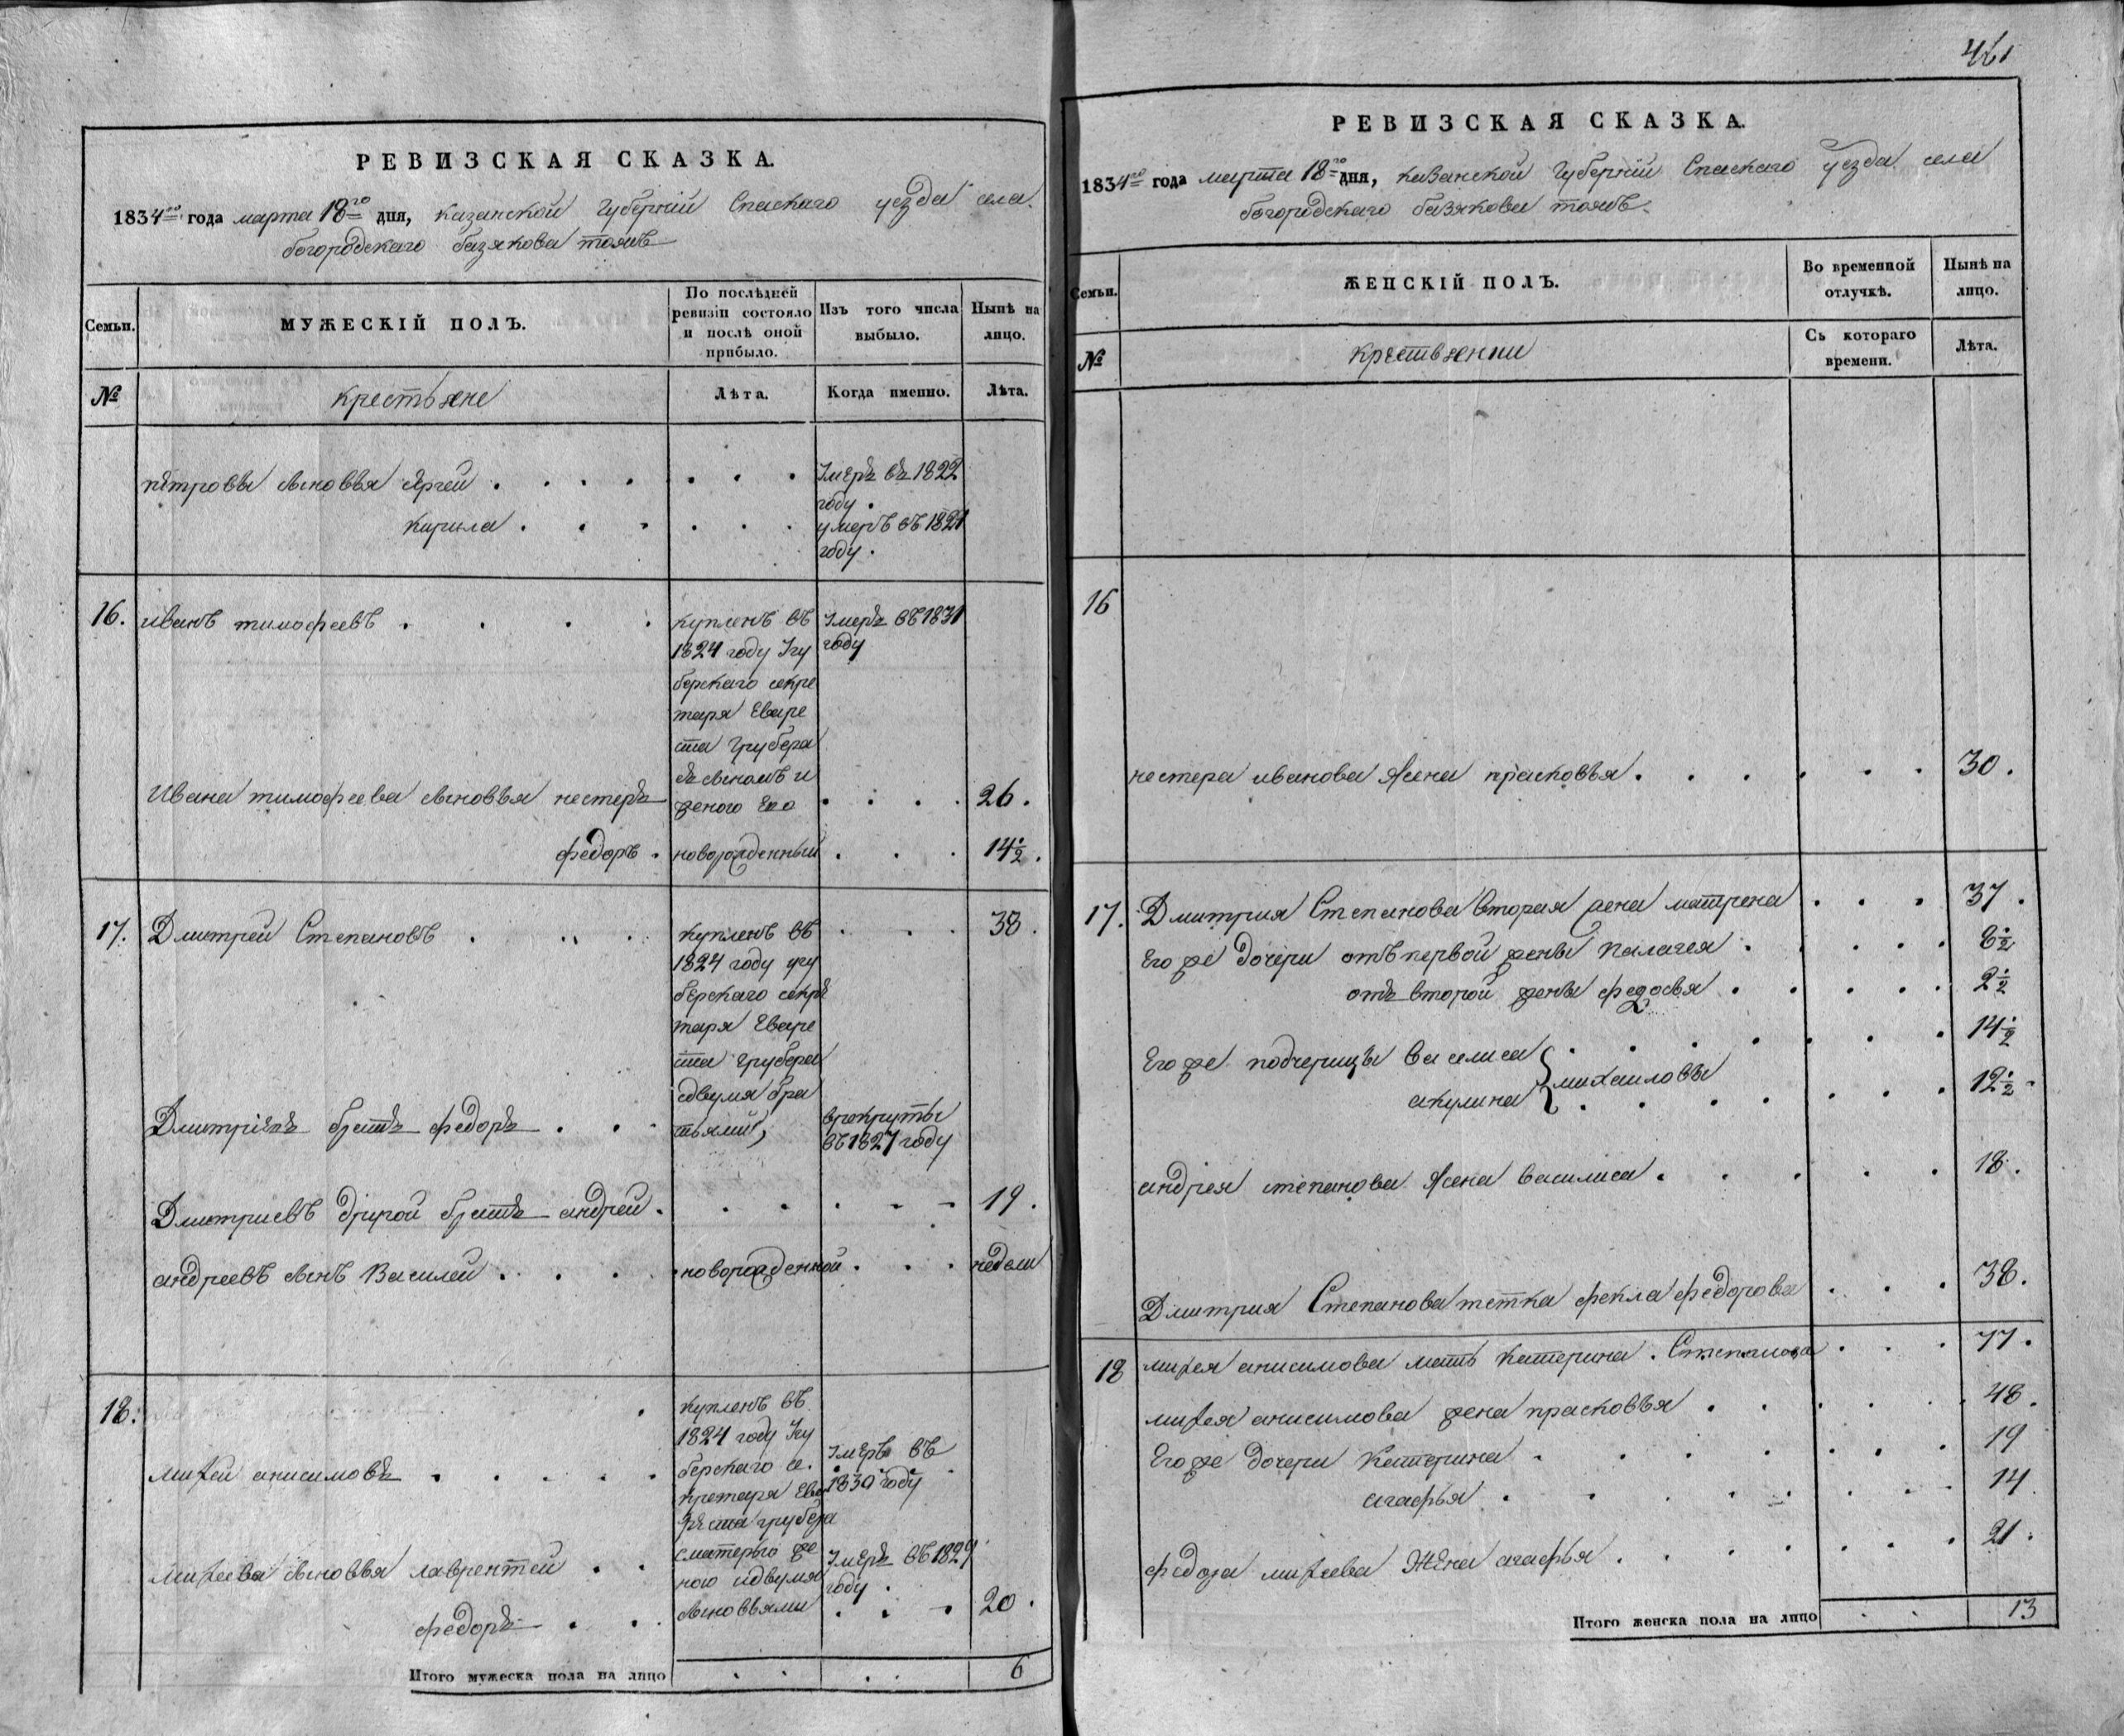 РЕВИЗСКАЯ СКАЗКА.
1834го года марта 18го дня, казанской Губерній Спаскаго уезда села
богородскаго базякова тожъ
Семьи.
МУЖЕСКІЙ ПОЛЪ.
По послѣдней ревизіи состояло и послѣ оной прибыло.
Изъ того числа выбыло.
Нынѣ на лицо.
№
крестьяне
Лѣта.
Когда именно.
Лѣта.
петровы сыновья сергей . . . .
Умеръ въ 1822 году.
кирила . . .
умеръ въ 1821 году.
16. иванъ тимофеевъ . . . .
купленъ въ
1824 году Угу
берскаго секре
таря Еваре
ста Грубера
съ сыномъ и
женою Его
Умеръ въ 1831
году
Ивана тимофеева сыновья нестеръ
26.
федоръ . новорожденный . . . 14½.
17. Дмитрей Степановъ . . .
купленъ въ
1824 году угу
берскаго секре
таря Еваре
ста грубера
сдвумя бра
тьями,
38.
Дмитріевъ братъ федоръ . . .
врекруты
въ 1827 году
Дмитриевъ другой братъ андрей . . . 19.
андреевъ сынъ Василей . . . . новорожденной . . . недели
18.
купленъ въ
1824 году Угу
берскаго се.
кретаря Ева
реста грубера
сматерью же
ною идвумя
сыновьями
михей анисимовъ . . . . .
Умеръ въ
1830 году
михеева сыновья лаврентей . .
Умеръ въ 1829
году.
федоръ . . . 20.
Итого мужеска пола на лицо . . . . 6
461
РЕВИЗСКАЯ СКАЗКА.
1834го года марта 18го дня, казанской Губерній Спаскаго уезда села
богородскаго базякова тожъ.
Семьи.
ЖЕНСКІЙ ПОЛЪ.
Во временной отлучкѣ.
Нынѣ на лицо.
№
крестьянки
Съ котораго времени.
Лѣта.
16
нестера иванова жена прасковья . . . . . . 30.
17. Дмитрия Степанова вторая жена матрена . . . 37.
Его же дочери отъ первой жены палагея . . . . . 8½
отъ второй жены федосья . . . . . 2½
Его же подчерицы василиса . . . . . . . 14½
михаиловы
акулина . . . . . . . 12½.
андрея степанова жена василиса . . . . . 18.
Дмитрия Степанова тетка фекла федорова . . . 38.
18 михея анисимова мать катерина . Степанова . . . 77.
михея анисимова жена прасковья . . . . . . 48.
Его же дочери катерина . . . . . . . 19
агафья . . . . . . . . 14
федора михеева Жена агафья . . . . . . . 21.
Итого женска пола на лицо . . 13